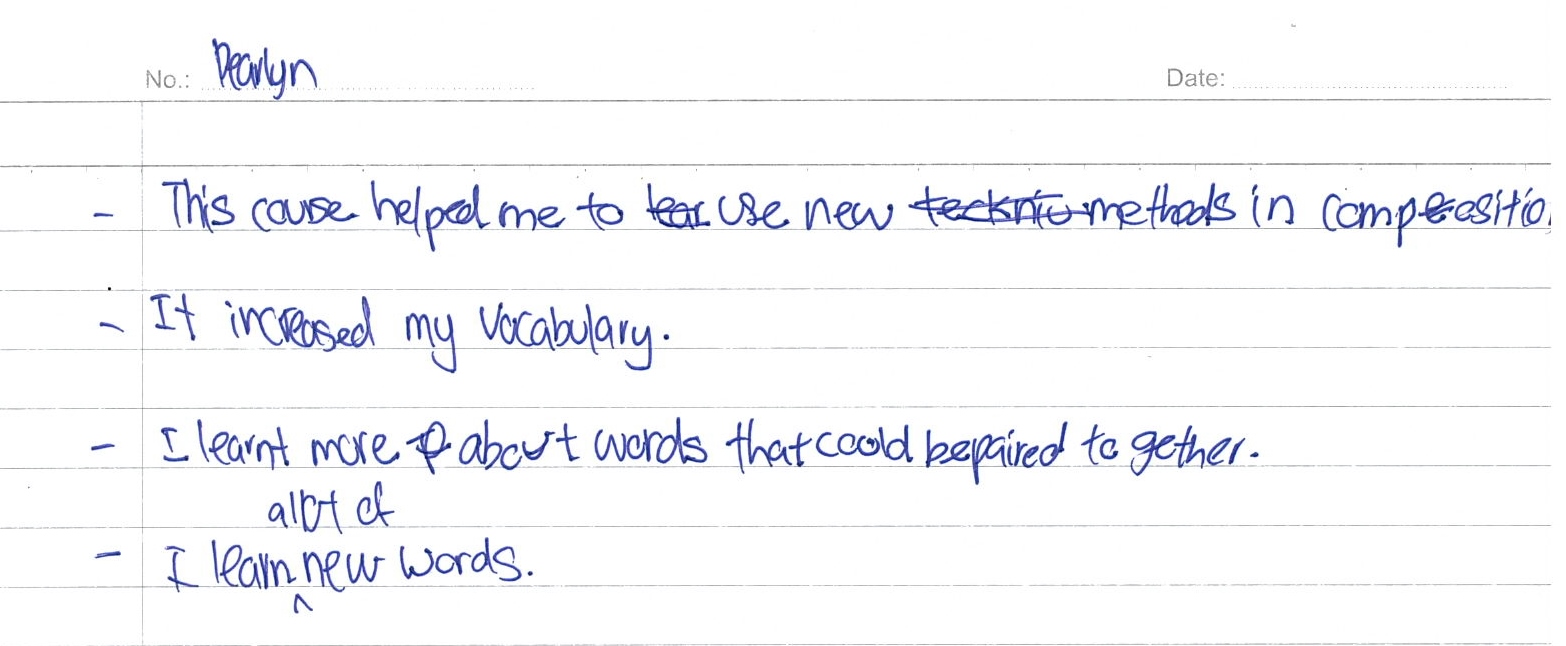 No.: Pearlyn Date:
- This couse helped me to use new methods in compositio
- It increased my vocabulary.
- I learnt more about words that could be paired to gether.
alot of
- I learn ^ new words.